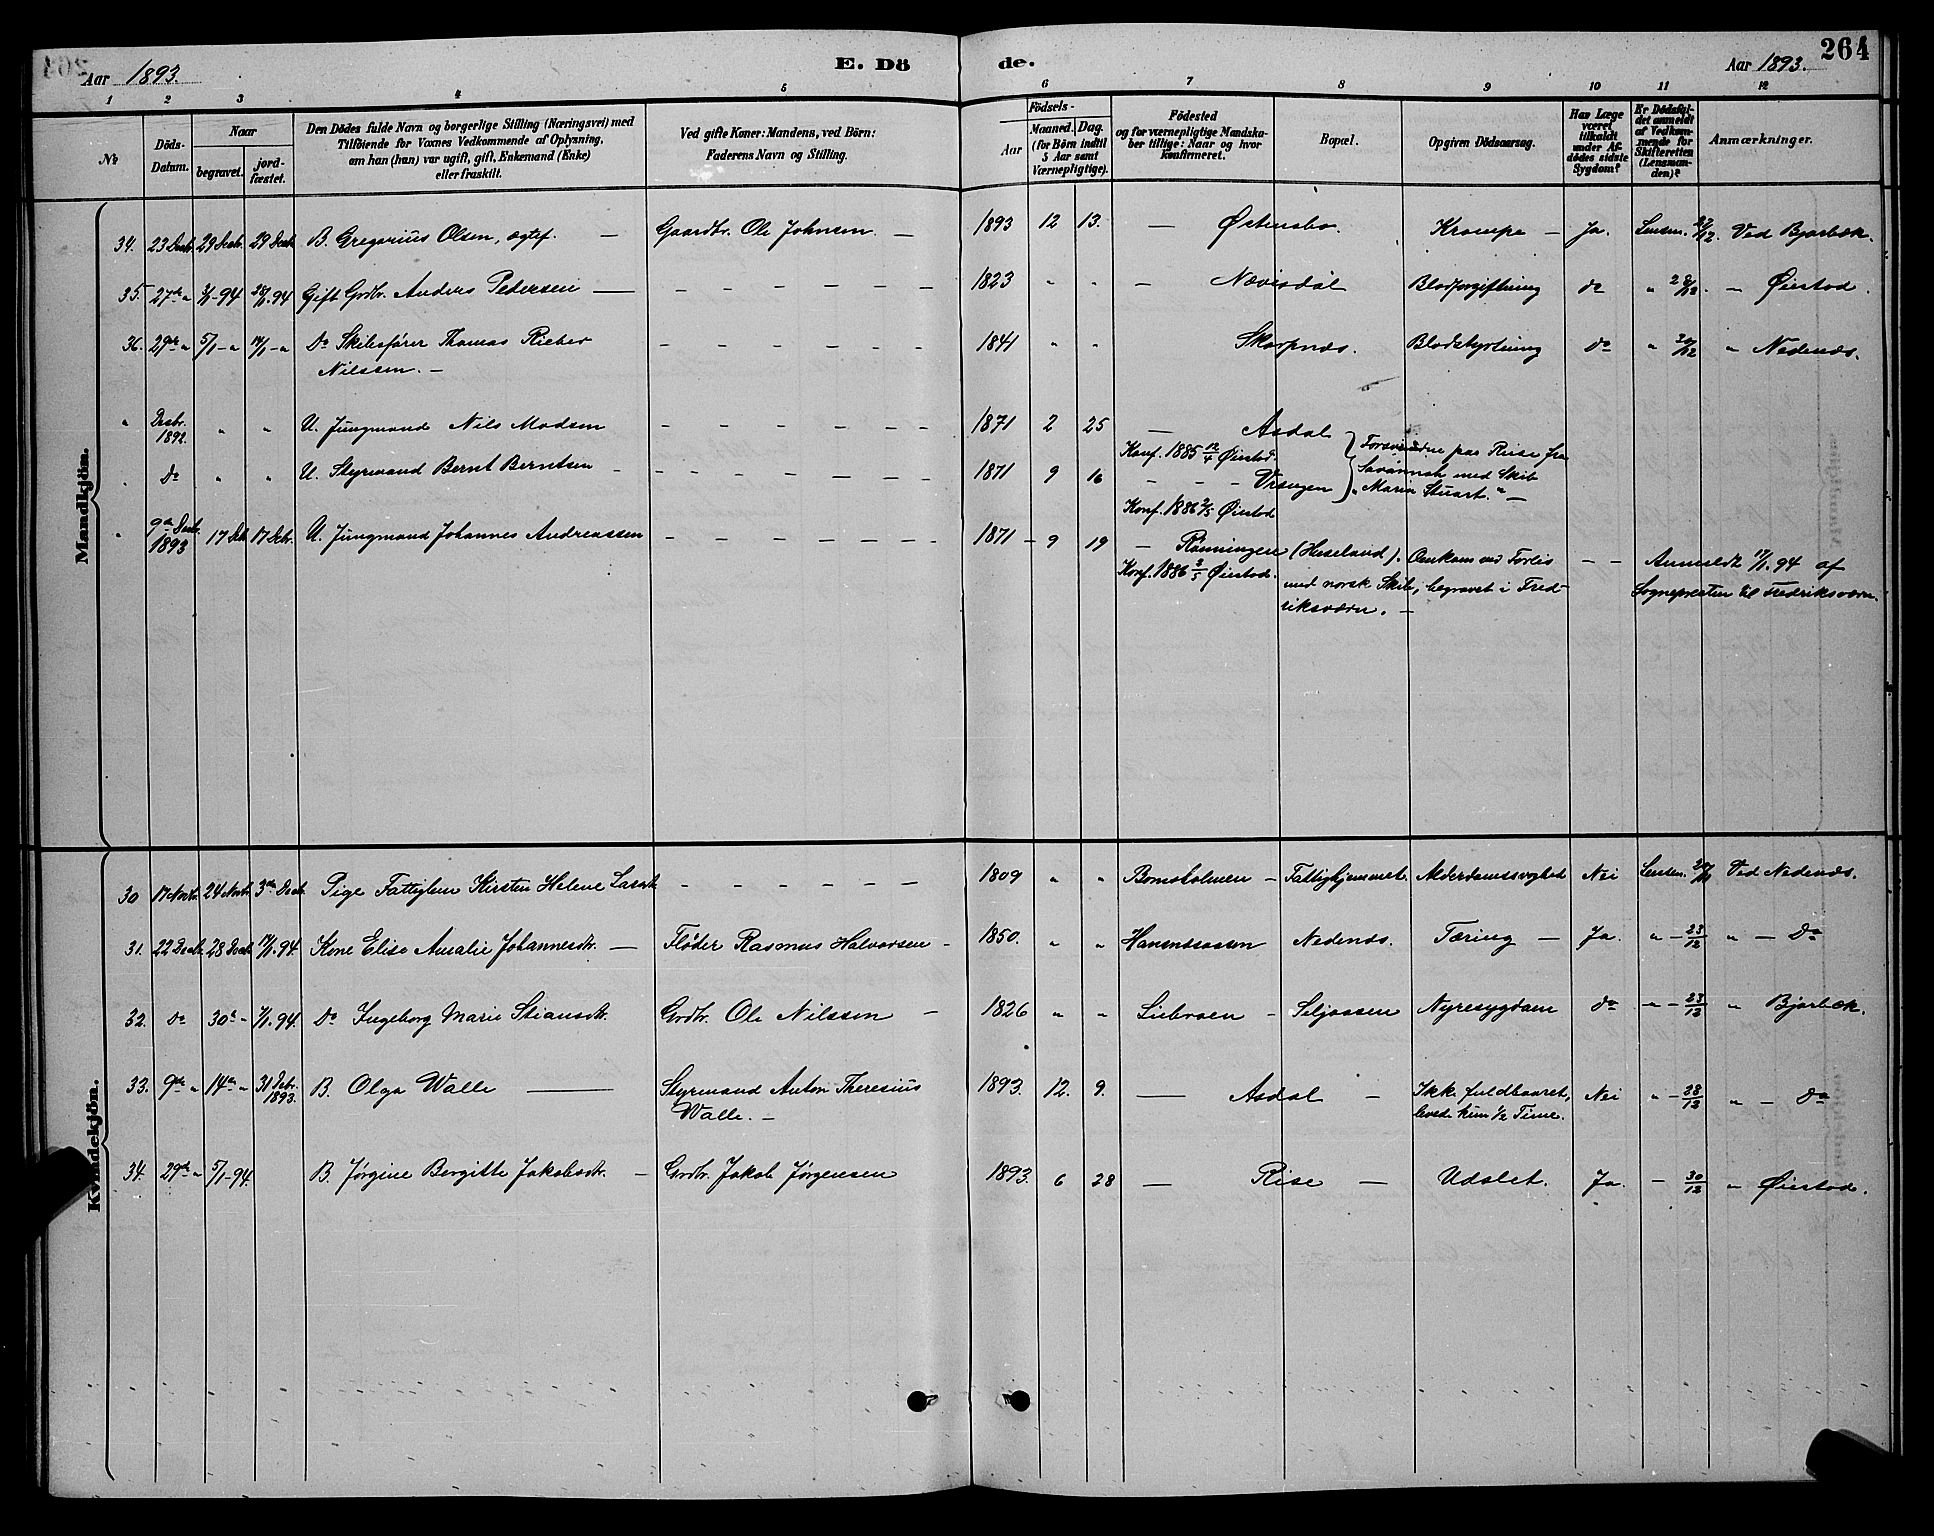 Aar 1893.
E. Dö
de.
Aar 1893.
264
1 2 3 4 5 6 7 8 9 10 11 12
No
Döds-Datum.
Naar
begravet.
jord-fæstet.
Den Dödes fulde Navn og borgerlige Stilling (Næringsvei) med
Tilföiende for Voxnes Vedkommende af Oplysning,
om han (hun) var ugift, gift, Enkemand (Enke)
eller fraskilt.
Ved gifte Koner: Mandens, ved Börn:
Faderens Navn og Stilling.
Födsels-
Aar
Maaned.
Dag.
(for Börn indtil
5 Aar samt
Værnepligtige).
Födested
og for værnepligtige Mandska-
ber tillige: Naar og hvor
konfirmeret.
Bopæl.
Opgiven Dödsaarsag.
Har Læge
været
tilkaldt
under Af-
dödes sidste
Sygdom?
Er Dödsfal-
det anmeldt
af Vedkom-
mende for
Skifteretten
(Lensman-
den)?
Anmærkninger.
Mandkjön.
34. 23 Decb. 29 Decb. 29 Decb. B. Gregorius Olsen, ægtef. — Gaardbr. Ole Johnsen. — 1893 12 13. — Østensbo. Krampe — Ja. Lensm. 27/12. Ved Bjorbæk.
35. 27de " 3/1-94 28/1.94 Gift Grdbr. Anders Pedersen — 1823 " " — Nævisdal Blodforgiftning do " 28/12. — Øiestad.
36. 29de " 5/1-" 14/1-" Do Skibsfører Thomas Rieber 1841 " " Skarpnæs. Blodstyrtning do " 30/12 " Nedenæs.
Nilssen. —
" Decbr. 1892. " " U. Jungmand Nils Madsen 1871 2 25 — Asdal
Konf. 1885 12/4 Øiestad.
Forsvundne paa Reise fra
" Do " " U. Styrmand Bernt Berntsen 1871 9 16 Vrengen
Savannah med Skib
"Maria Stuart." —
Konf. 1886 2/5 Øiestad
" 9de Decb. 1893 17 Decb. 17 Decbr. U. Jungmand Johannes Andreassen 1871 — 9 19 — Rønningen (Huseland). Omkom ved Forlis — Anmeldt 17/1.94 af
Konf. 1886 2/5 Øiestad. med norsk Skib, begravet i Fred- Sognepresten til Fredriksværn.
riksværn. —
Kvindekjön.
30 17 Novbr. 24 Novbr. 3de Decb. Pige Fattiglem Kirsten Helene 1809 " " Bomsholmen — Fattighjemmet. Alderdomssvaghed Nei Lensm. Ved Nedenæs.
31. 22 Decb. 28 Decb. 14/1.94. Kone Elise Amalie Johannesdtr. — Fløder Rasmus Halvorsen — 1850. " " Nedenæs. Tæring — Ja. " — 23/12 " — Do
32. Do 30te " 7/1.94. Do Ingeborg Marie Stiansdtr. Grdbr. Ole Nilssen — 1826 " " Liebroen — Seljaasen Nyresygdom do " — 23/12 " Bjorbæk.
33. 9de " 14de " 31 Debr. 1893. B. Olga Walle — Styrmand Anton Theresius 1893. 12. 9. — Asdal — Ikke fuldbaaret, Nei " — 28/12 " — Do
Walle. — levede kun 1/2 Time.
34. 29de " 5/1-94. B. Jørgine Bergitte Jakobsdtr. — Grdbr. Jakob Jørgensen 1893. 6 28 — Rise — Udslet. Ja. — 30/12 " Øiestad.